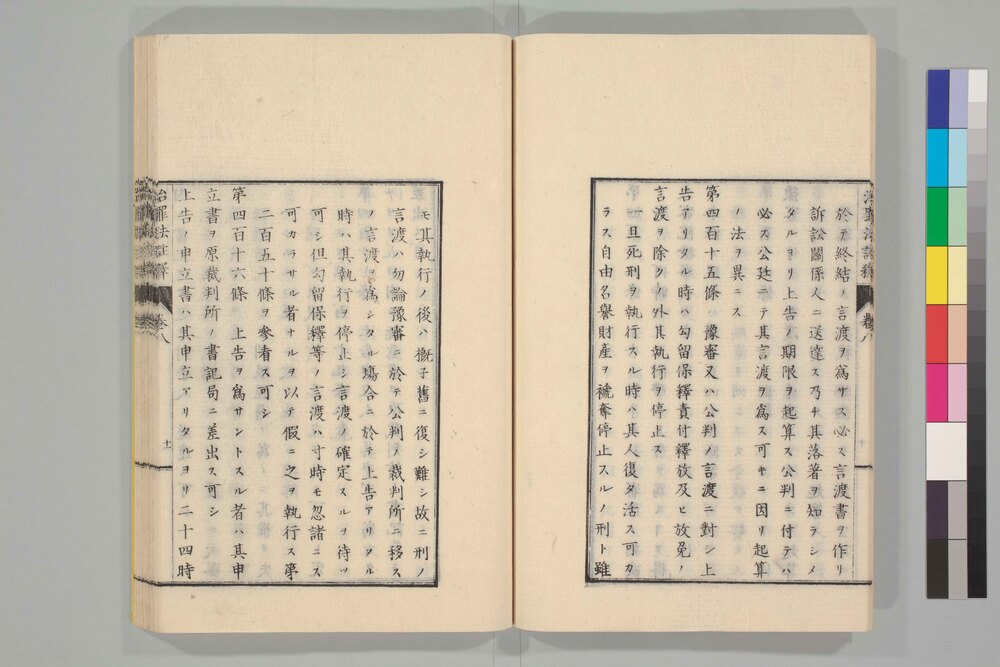 於テ終結ノ言渡ヲ爲サス必ス言渡書ヲ作リ
訴訟關係人ニ送達ス乃チ其落著ヲ知ラシメ
タルヨリ上告ノ期限ヲ起算ス公判ニ付テハ
必ス公廷ニテ其言渡ヲ爲ス可キニ因リ起算
ノ法ヲ異ニス
第四百十五條 豫審又ハ公判ノ言渡ニ對シ上
告アリタル時ハ勾留保釋責付釋放及ヒ放免ノ
言渡ヲ除クノ外其執行ヲ停止ス
一旦死刑ヲ執行スル時ハ其人復タ活ス可カ
ラス自由名譽財産ヲ褫奪停止スルノ刑ト雖
モ其執行ノ後ハ概子舊ニ復シ難シ故ニ刑ノ
言渡ハ勿論豫審ニ於テ公判ノ裁判所ニ移ス
ノ言渡ヲ爲シタル塲合ニ於テ上告アリタル
時ハ其執行ヲ停止シ言渡ノ確定スルヲ待ツ
可シ但勾留保釋等ノ言渡ハ寸時モ忽諸ニス
可カラサル者ナルヲ以テ假ニ之ヲ執行ス第
二百五十條ヲ參看ス可シ
第四百十六條 上告ヲ爲サントスル者ハ其申
立書ヲ原裁判所ノ書記局ニ差出ス可シ
上告ノ申立書ハ其申立アリタルヨリ二十四時
治罪法註釋 卷八 十一